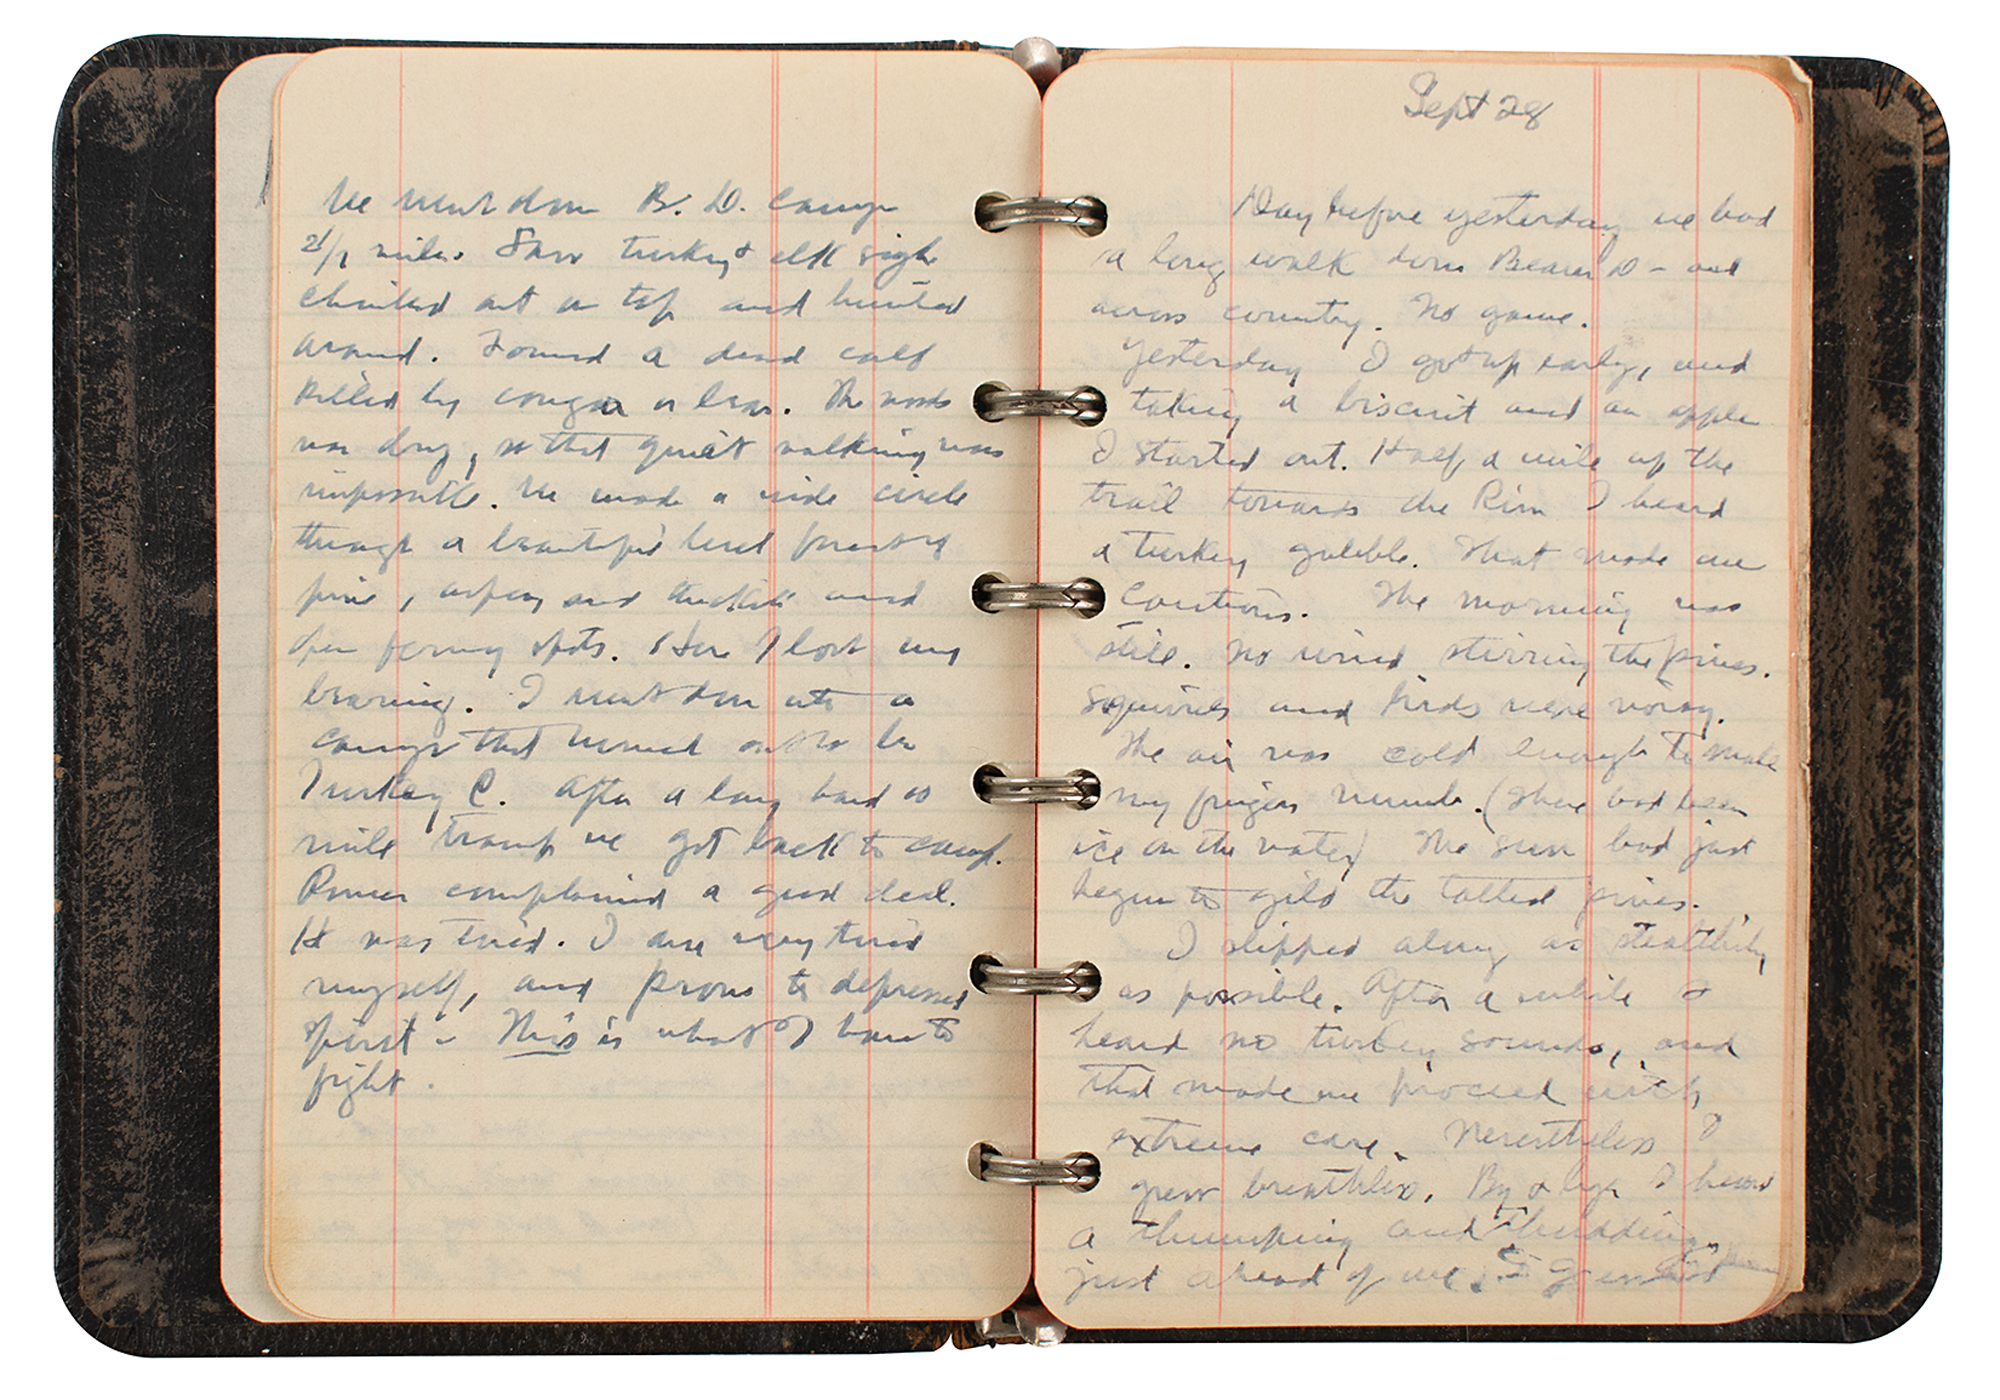 We went down B. D. Canyon
2 1/2 miles. Saw turkey & elk sign
Climbed out on top and hunted
around. Found a dead calf
killed by cougar or bear. The woods
was dry, so that quiet walking was
impossible. We made a wide circle
through a beautiful level forest of
pine, aspen and thickets and
open ferny spots. Here I lost my
bearing. I went down into a
canyon that turned out to be
Turkey C. After a long hard 10
mile tramp we got back to camp.
Romer complained a good deal.
He was tired. I am very tired
myself, and prone to depressed
spirit - This is what I have to
fight.
Sept 28
Day before yesterday we had
a long walk down Beaver D - and
across country. No game.
Yesterday I got up early, and
taking a biscuit and an apple
I started out. Half a mile up the
trail towards the Rim I heard
a turkey gobble. That made me
Cautious. The morning was
still. No wind stirring the pines.
Squirrels and birds were noisy.
The air was cold enough to make
my fingers numb. (There had been
ice on the water) The sun had just
begun to gild the tallest pines.
I slipped along as stealthily
as possible. After a while I
heard no turkey sounds, and
that made me proceed with
extreme care. Nevertheless I
grew breathless. By & bye I heard
a thumping and thudding
just ahead of me.